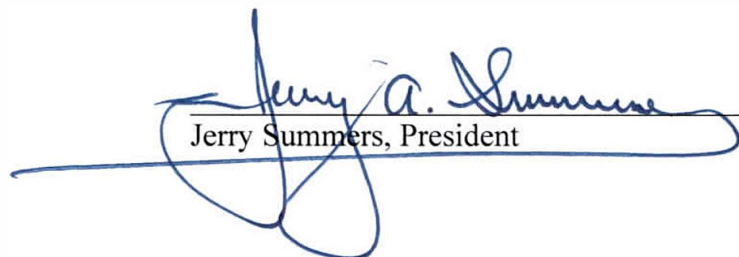 Jerry A. Summers
Jerry Summers, President